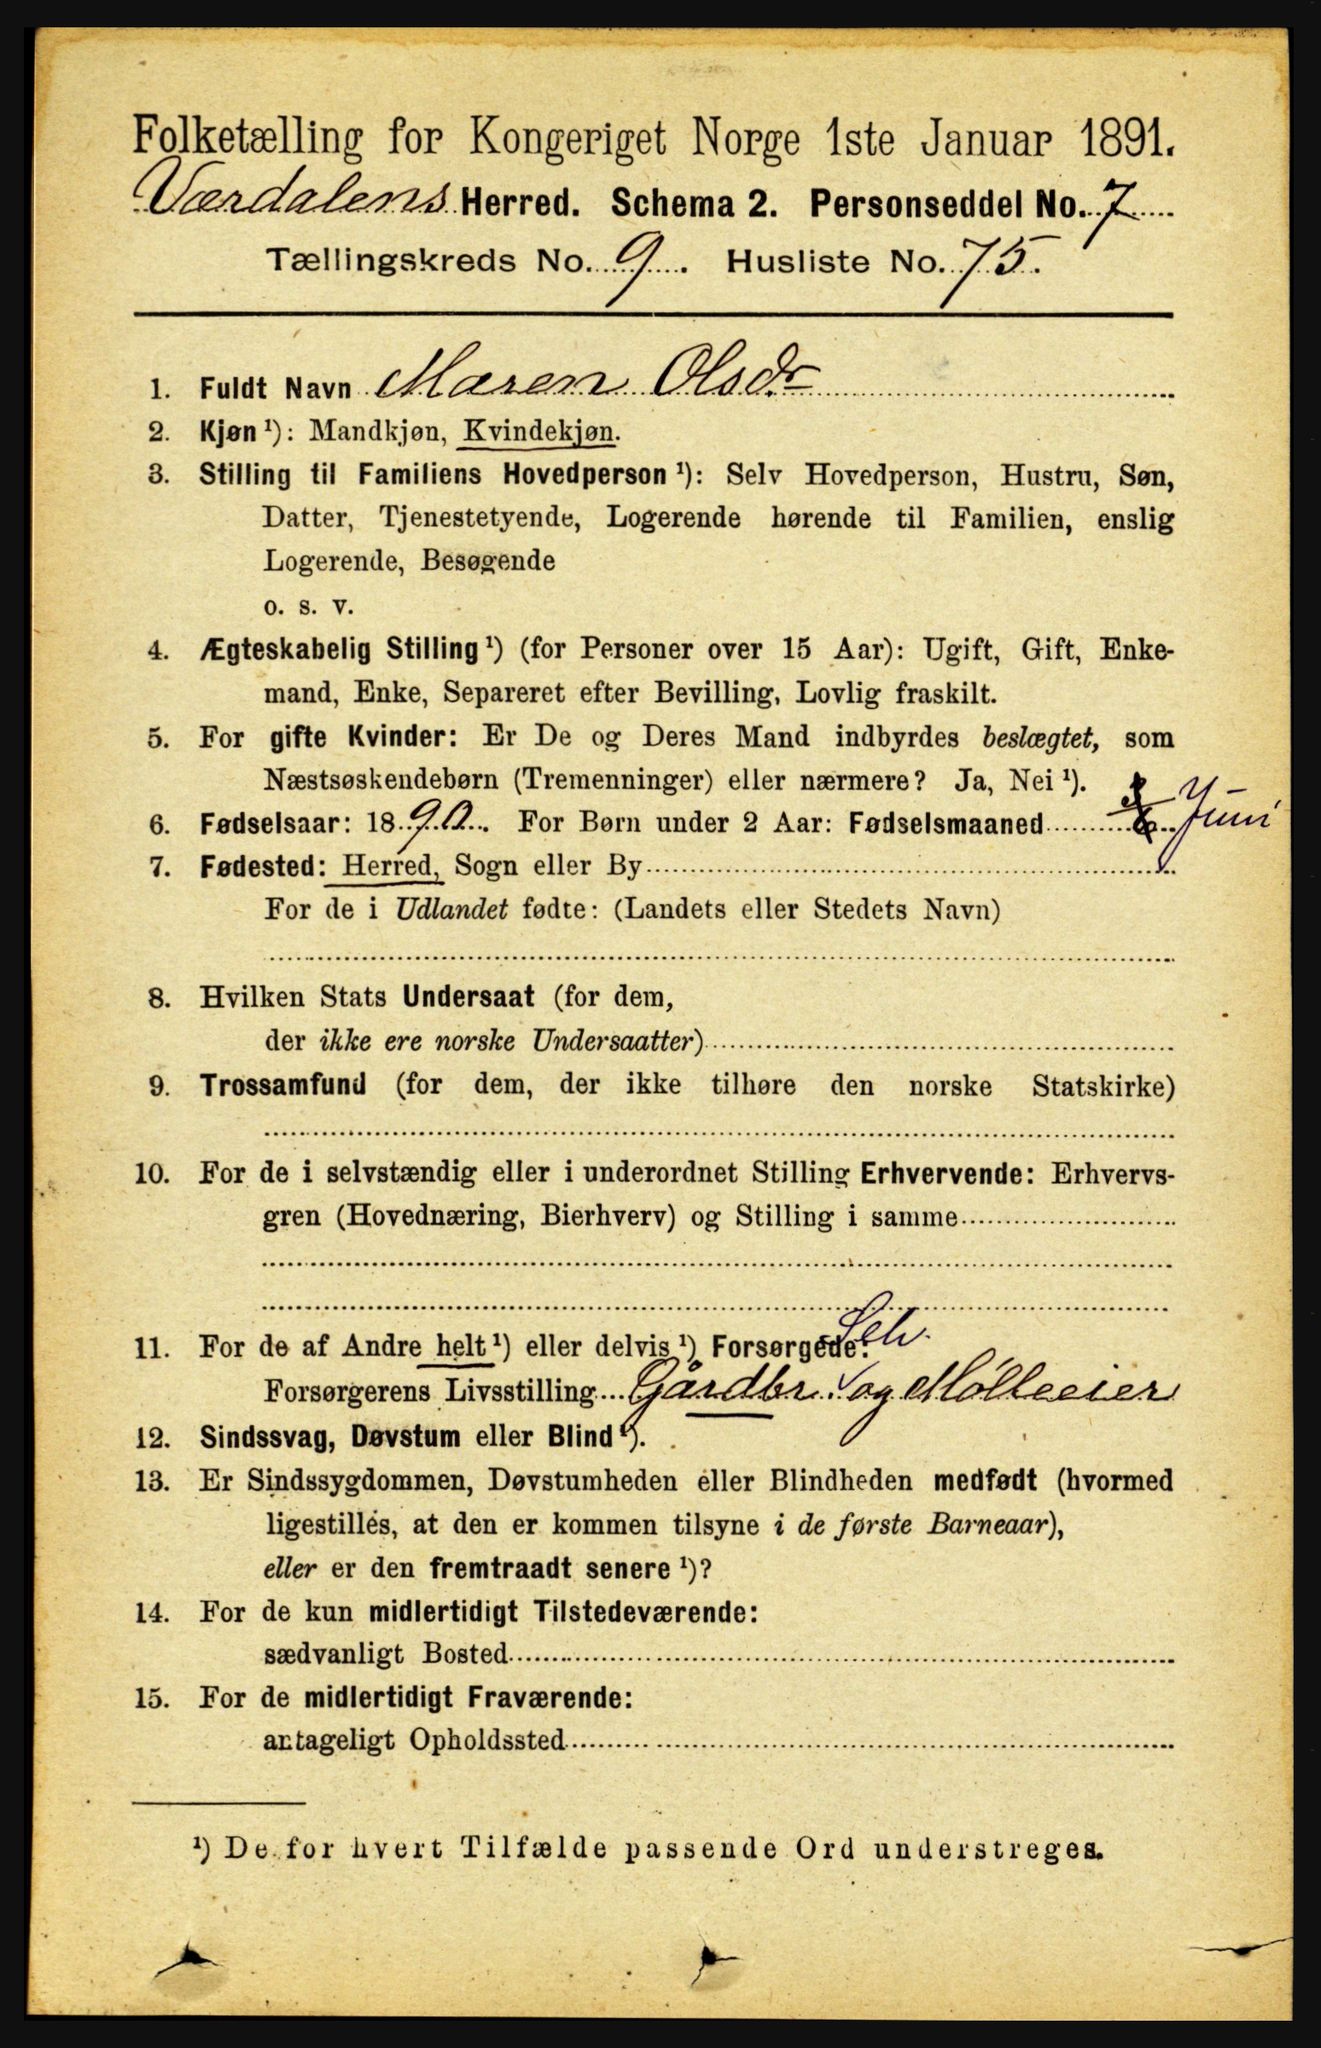 Folketælling for Kongeriget Norge 1ste Januar 1891.
Værdalens Herred. Schema 2. Personseddel No. 7
Tællingskreds No. 9. Husliste No. 75.
1. Fuldt Navn Maren Olsdr
2. Kjøn ¹): Mandkjøn, Kvindekjøn.
3. Stilling til Familiens Hovedperson ¹): Selv Hovedperson, Hustru, Søn,
Datter, Tjenestetyende, Logerende hørende til Familien, enslig
Logerende, Besøgende
o. s. v.
4. Ægteskabelig Stilling ¹) (for Personer over 15 Aar): Ugift, Gift, Enke-
mand, Enke, Separeret efter Bevilling, Lovlig fraskilt.
5. For gifte Kvinder: Er De og Deres Mand indbyrdes beslægtet, som
Næstsøskendebørn (Tremenninger) eller nærmere? Ja, Nei ¹).
6. Fødselsaar: 1890. For Børn under 2 Aar: Fødselsmaaned Juni
7. Fødested: Herred, Sogn eller By
For de i Udlandet fødte: (Landets eller Stedets Navn)
8. Hvilken Stats Undersaat (for dem,
der ikke ere norske Undersaatter)
9. Trossamfund (for dem, der ikke tilhøre den norske Statskirke)
10. For de i selvstændig eller i underordnet Stilling Erhvervende: Erhvervs-
gren (Hovednæring, Bierhverv) og Stilling i samme
Selv.
11. For de af Andre helt ¹) eller delvis ¹) Forsørgede:
Forsørgerens Livsstilling Gårdbr. og Mölleeier
12. Sindssvag, Døvstum eller Blind ¹).
13. Er Sindssygdommen, Døvstumheden eller Blindheden medfødt (hvormed
ligestilles, at den er kommen tilsyne i de første Barneaar),
eller er den fremtraadt senere ¹)?
14. For de kun midlertidigt Tilstedeværende:
sædvanligt Bosted
15. For de midlertidigt Fraværende:
antageligt Opholdssted
¹) De for hvert Tilfælde passende Ord understreges.